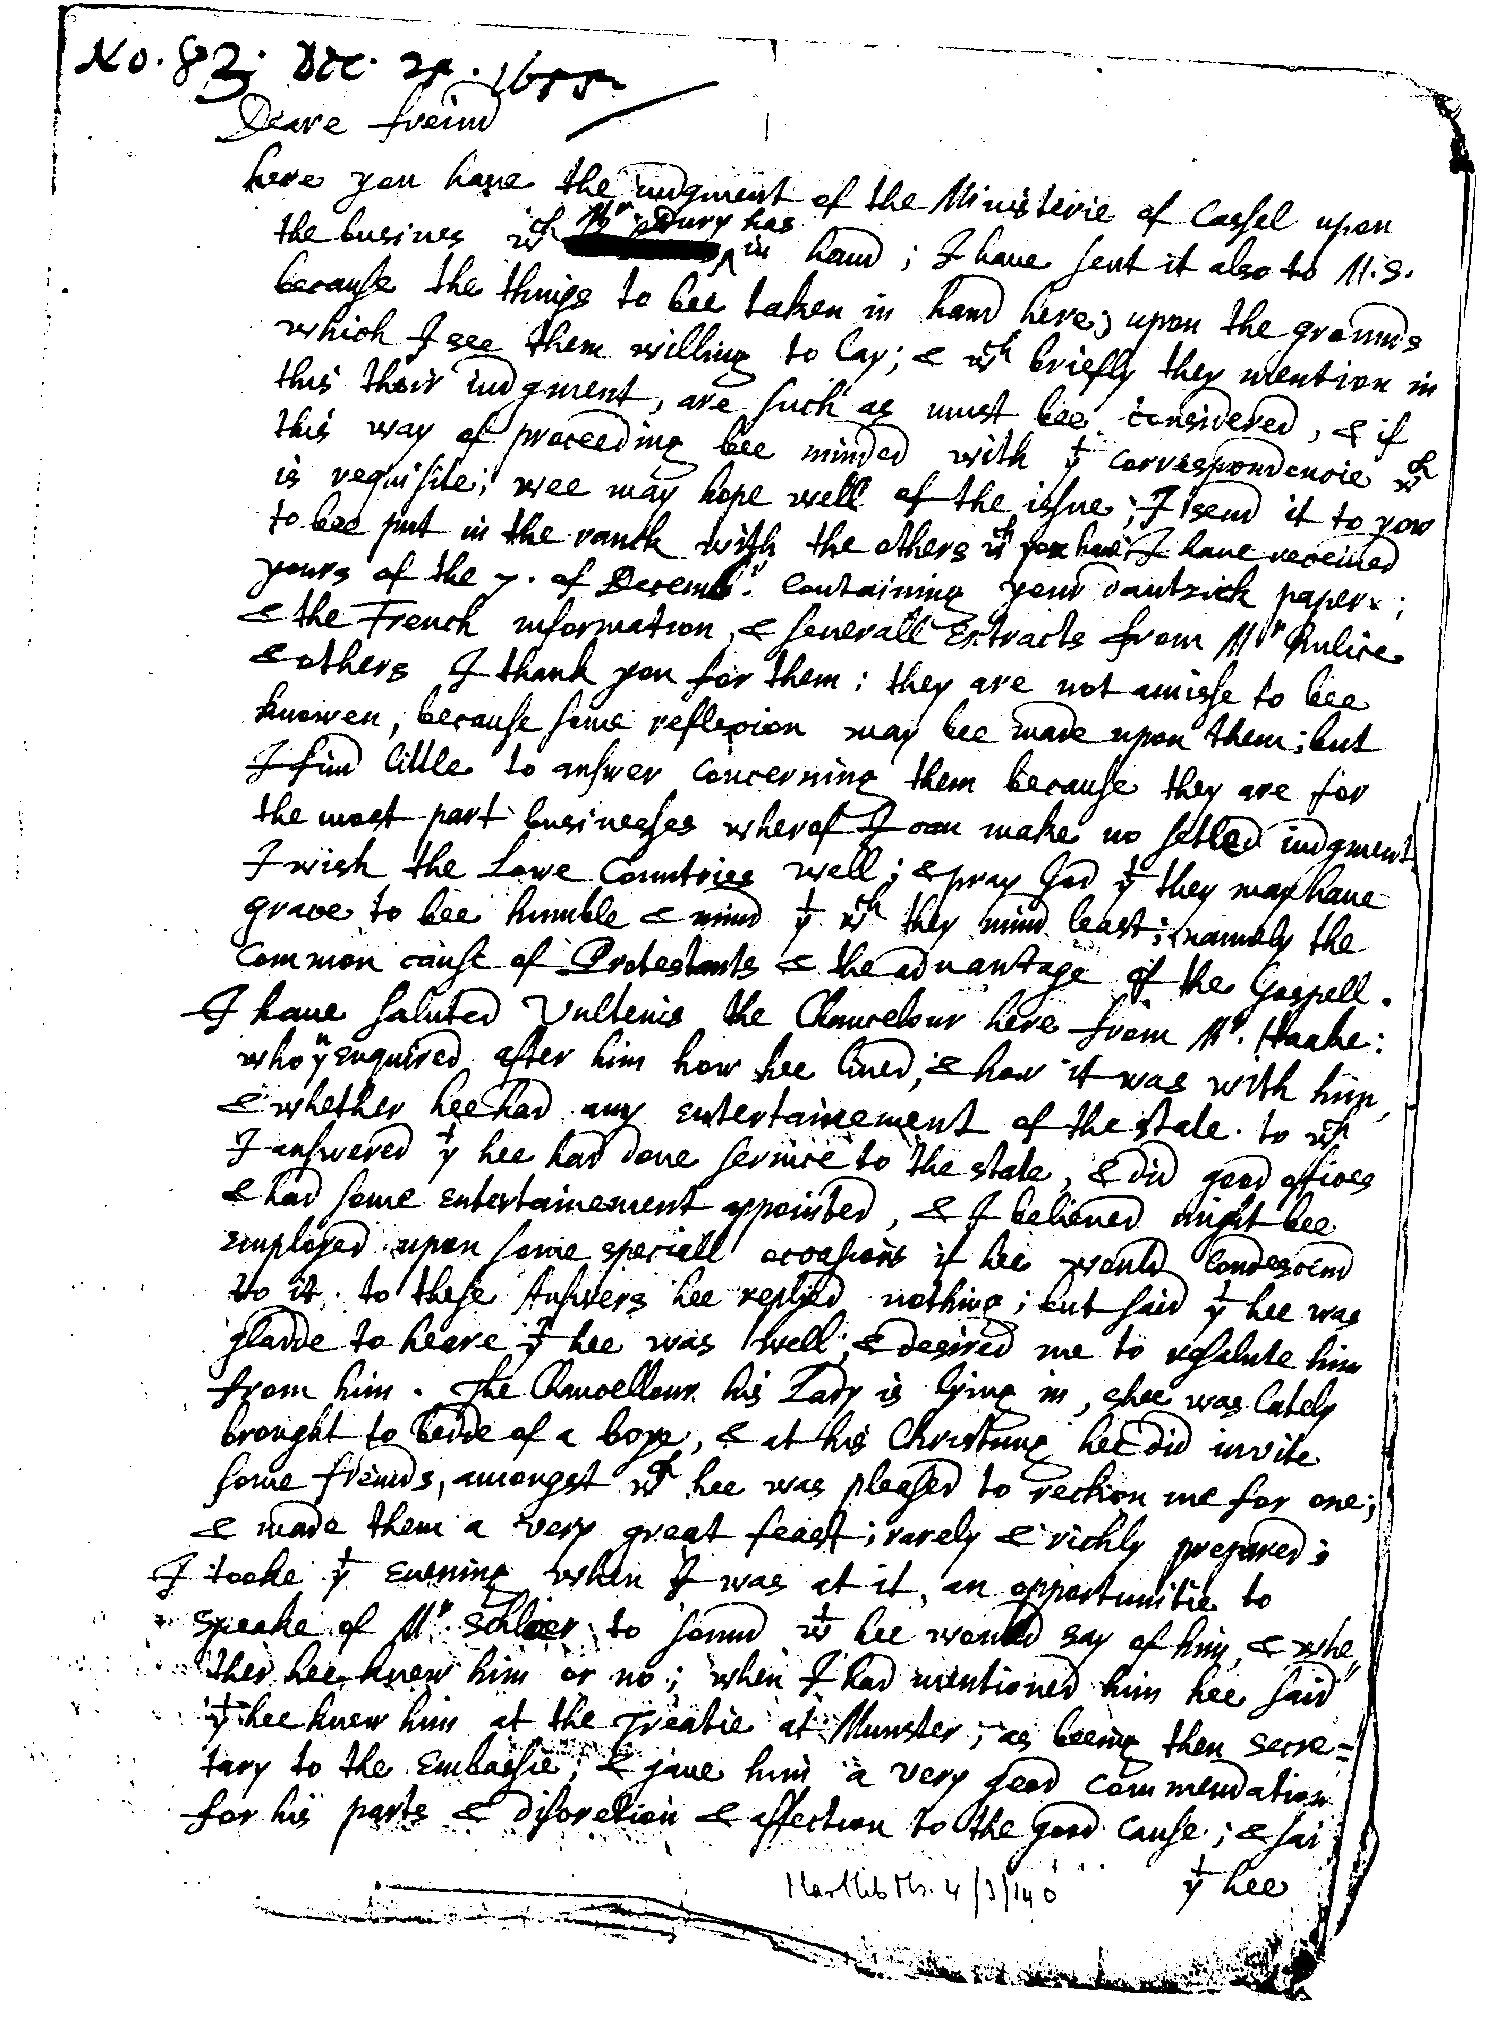 No. 83. Dec. 28. 1655
Deare freind
here you haue the iudgment of the Ministerie of Cassel upon
the busines wch Mr Dury has in hand; I haue sent it also to M.S.
because the things to bee taken in hand here; upon the grounds
which I see them willing to lay; & wch briefly they mention in
this their iudgment, are such as must bee considered, & if
this way of proceeding bee minded with yt correspondencie wch
is requisite; wee may hope well of the issue; I send it to you
to bee put in the ranck with the others wch you haue I haue receiued
yours of the 7. of Decembr. containing your dantzick papers;
& the French information, & seuerall Extracts from Mr Rulice
& others I thank you for them: they are not amisse to bee
knowen, because some reflexion may bee made upon them; but
I find little to answer concerning them because they are for
the most part businesses wherof I can make no setled iudgment
I wish the Lowe Countries well; & pray God yt they may haue
grace to bee humble & mind yt wch they mind least; namely the
common cause of Protestants & the aduantage of the Gospell.
I haue saluted Vulteius the Chancelour here from Mr. Haake:
who yn enquired after him how hee liued, & how it was with him,
& whether hee had any entertainement of the state. to wch
I answered yt hee had done seruice to the state, & did good offices
& had some entertainement appointed, & I belieued might bee
employed upon some speciall occasions if hee would condescend
to it. to these Answers hee replied nothing; but said yt hee was
gladde to heare yt hee was well; & desired me to resalute him
from him. The Chancellour his Lady is lying in, shee was lately
brought to bedde of a boye, & at his Christning hee did invite
some friends, amongst wch hee was pleased to reckon me for one;
& made them a very great feast; rarely & richly prepared;
I tooke yt euening when I was at it, an opportunitie to
speake of Mr to sound wt hee would say of him, & whe
ther hee knew him or no; when I had mentioned him hee said
yt hee knew him at the Treatie at Munster; as beeing then secre=
tary to the Embassie; & gaue him a very good commendation
for his parts & discretion & affection to the good cause; & sai
yt hee
Hartlib Ms. 4/3/140